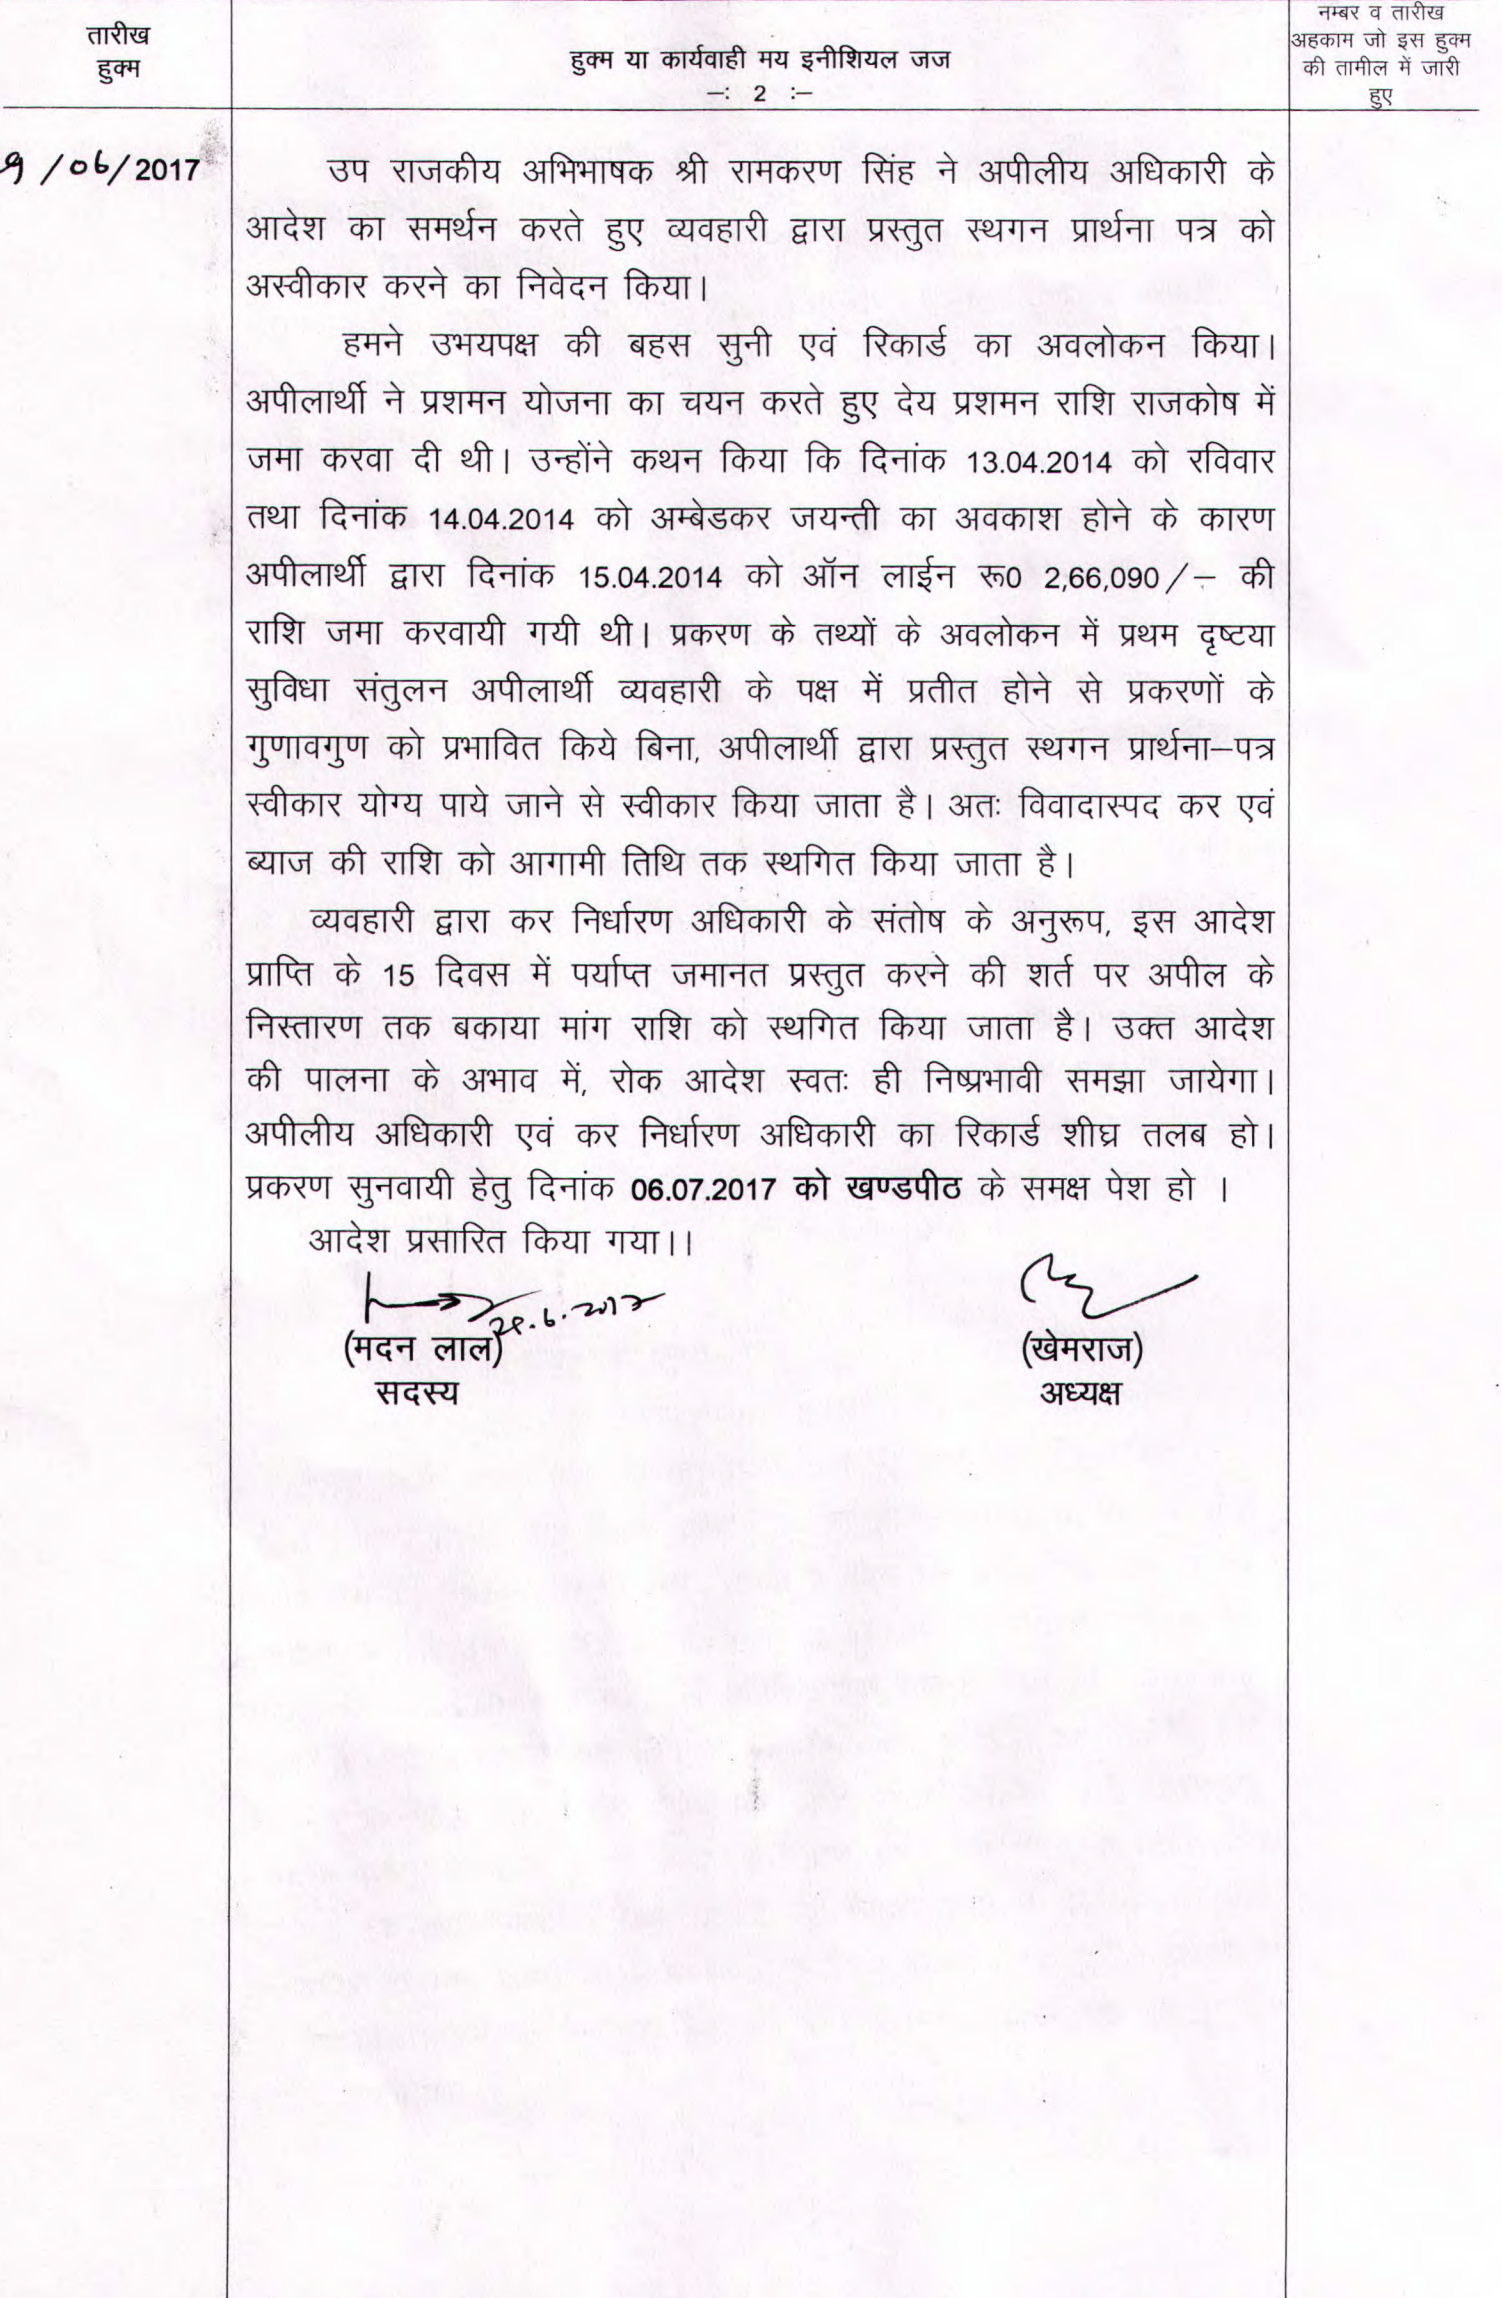 तारीख
हुक्म
हुक्म या कार्यवाही मय इनीशियल जज
–: 2 :–
नम्बर व तारीख
अहकाम जो इस हुक्म
की तामील में जारी
हुए
9/06/2017
उप राजकीय अभिभाषक श्री रामकरण सिंह ने अपीलीय अधिकारी के
आदेश का समर्थन करते हुए व्यवहारी द्वारा प्रस्तुत स्थगन प्रार्थना पत्र को
अस्वीकार करने का निवेदन किया।
हमने उभयपक्ष की बहस सुनी एवं रिकार्ड का अवलोकन किया।
अपीलार्थी ने प्रशमन योजना का चयन करते हुए देय प्रशमन राशि राजकोष में
जमा करवा दी थी। उन्होंने कथन किया कि दिनांक 13.04.2014 को रविवार
तथा दिनांक 14.04.2014 को अम्बेडकर जयन्ती का अवकाश होने के कारण
अपीलार्थी द्वारा दिनांक 15.04.2014 को ऑन लाईन रू0 2,66,090/– की
राशि जमा करवायी गयी थी। प्रकरण के तथ्यों के अवलोकन में प्रथम दृष्टया
सुविधा संतुलन अपीलार्थी व्यवहारी के पक्ष में प्रतीत होने से प्रकरणों के
गुणावगुण को प्रभावित किये बिना, अपीलार्थी द्वारा प्रस्तुत स्थगन प्रार्थना–पत्र
स्वीकार योग्य पाये जाने से स्वीकार किया जाता है। अतः विवादास्पद कर एवं
ब्याज की राशि को आगामी तिथि तक स्थगित किया जाता है।
व्यवहारी द्वारा कर निर्धारण अधिकारी के संतोष के अनुरूप, इस आदेश
प्राप्ति के 15 दिवस में पर्याप्त जमानत प्रस्तुत करने की शर्त पर अपील के
निस्तारण तक बकाया मांग राशि को स्थगित किया जाता है। उक्त आदेश
की पालना के अभाव में, रोक आदेश स्वतः ही निष्प्रभावी समझा जायेगा।
अपीलीय अधिकारी एवं कर निर्धारण अधिकारी का रिकार्ड शीघ्र तलब हो।
प्रकरण सुनवायी हेतु दिनांक 06.07.2017 को खण्डपीठ के समक्ष पेश हो ।
आदेश प्रसारित किया गया।।
(मदन लाल)
सदस्य
(खेमराज)
अध्यक्ष